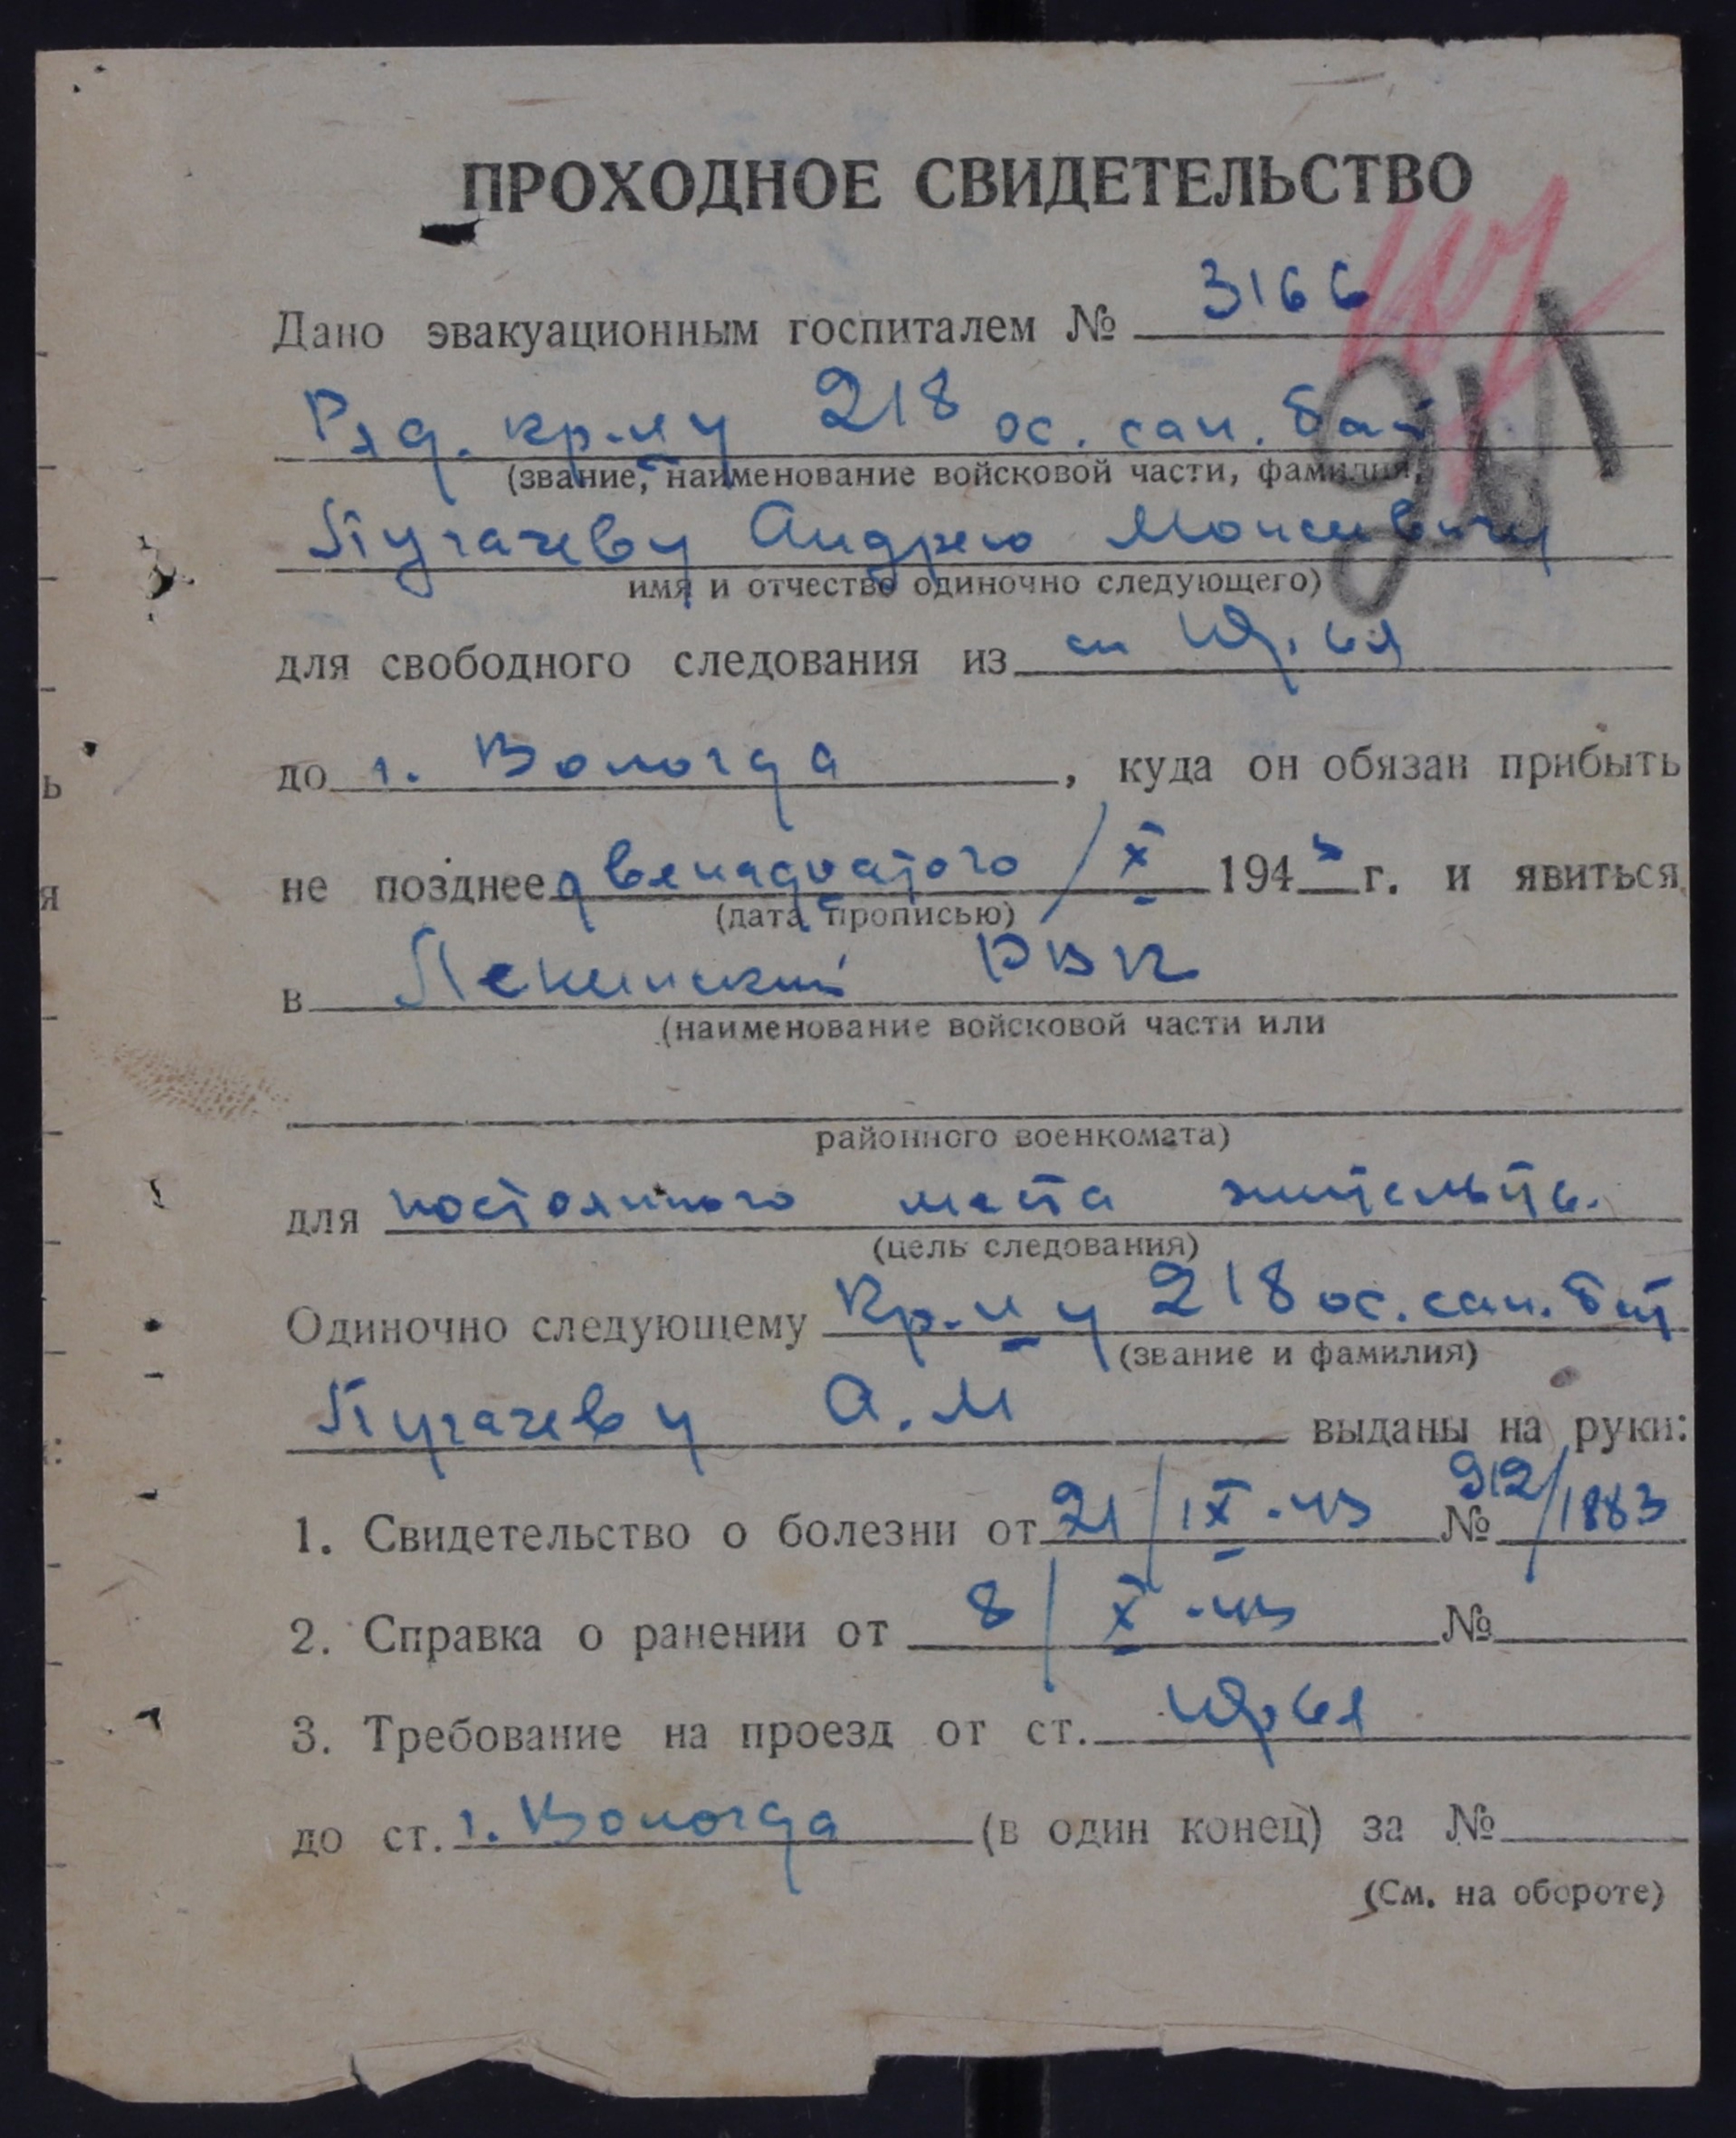 ПРОХОДНОЕ СВИДЕТЕЛЬСТВО
Дано эвакуационным госпиталем № 3166
Ряд. кр-цу 218 ос. сан. бат
(звание, наименование войсковой части, фамилия,
Пугачеву Андрею Моисеевичу
имя и отчество одиночно следующего)
для свободного следования из ст Юрья
до г. Вологда, куда он обязан прибыть
не позднее двенадцатого / X 1943 г. и явиться
(дата прописью)
в РВК
(наименование войсковой части или
районного военкомата)
для постоянного места жительств.
(цель следования)
Одиночно следующему Кр-цу 218 ос. сан. бат
(звание и фамилия)
Пугачеву А. М выданы на руки:
1. Свидетельство о болезни от 21/IX-43 № 912/1883
2. Справка о ранении от 8/X-43 №
3. Требование на проезд от ст. Юрья
до ст. г. Вологда (в один конец) за №
(См. на обороте)